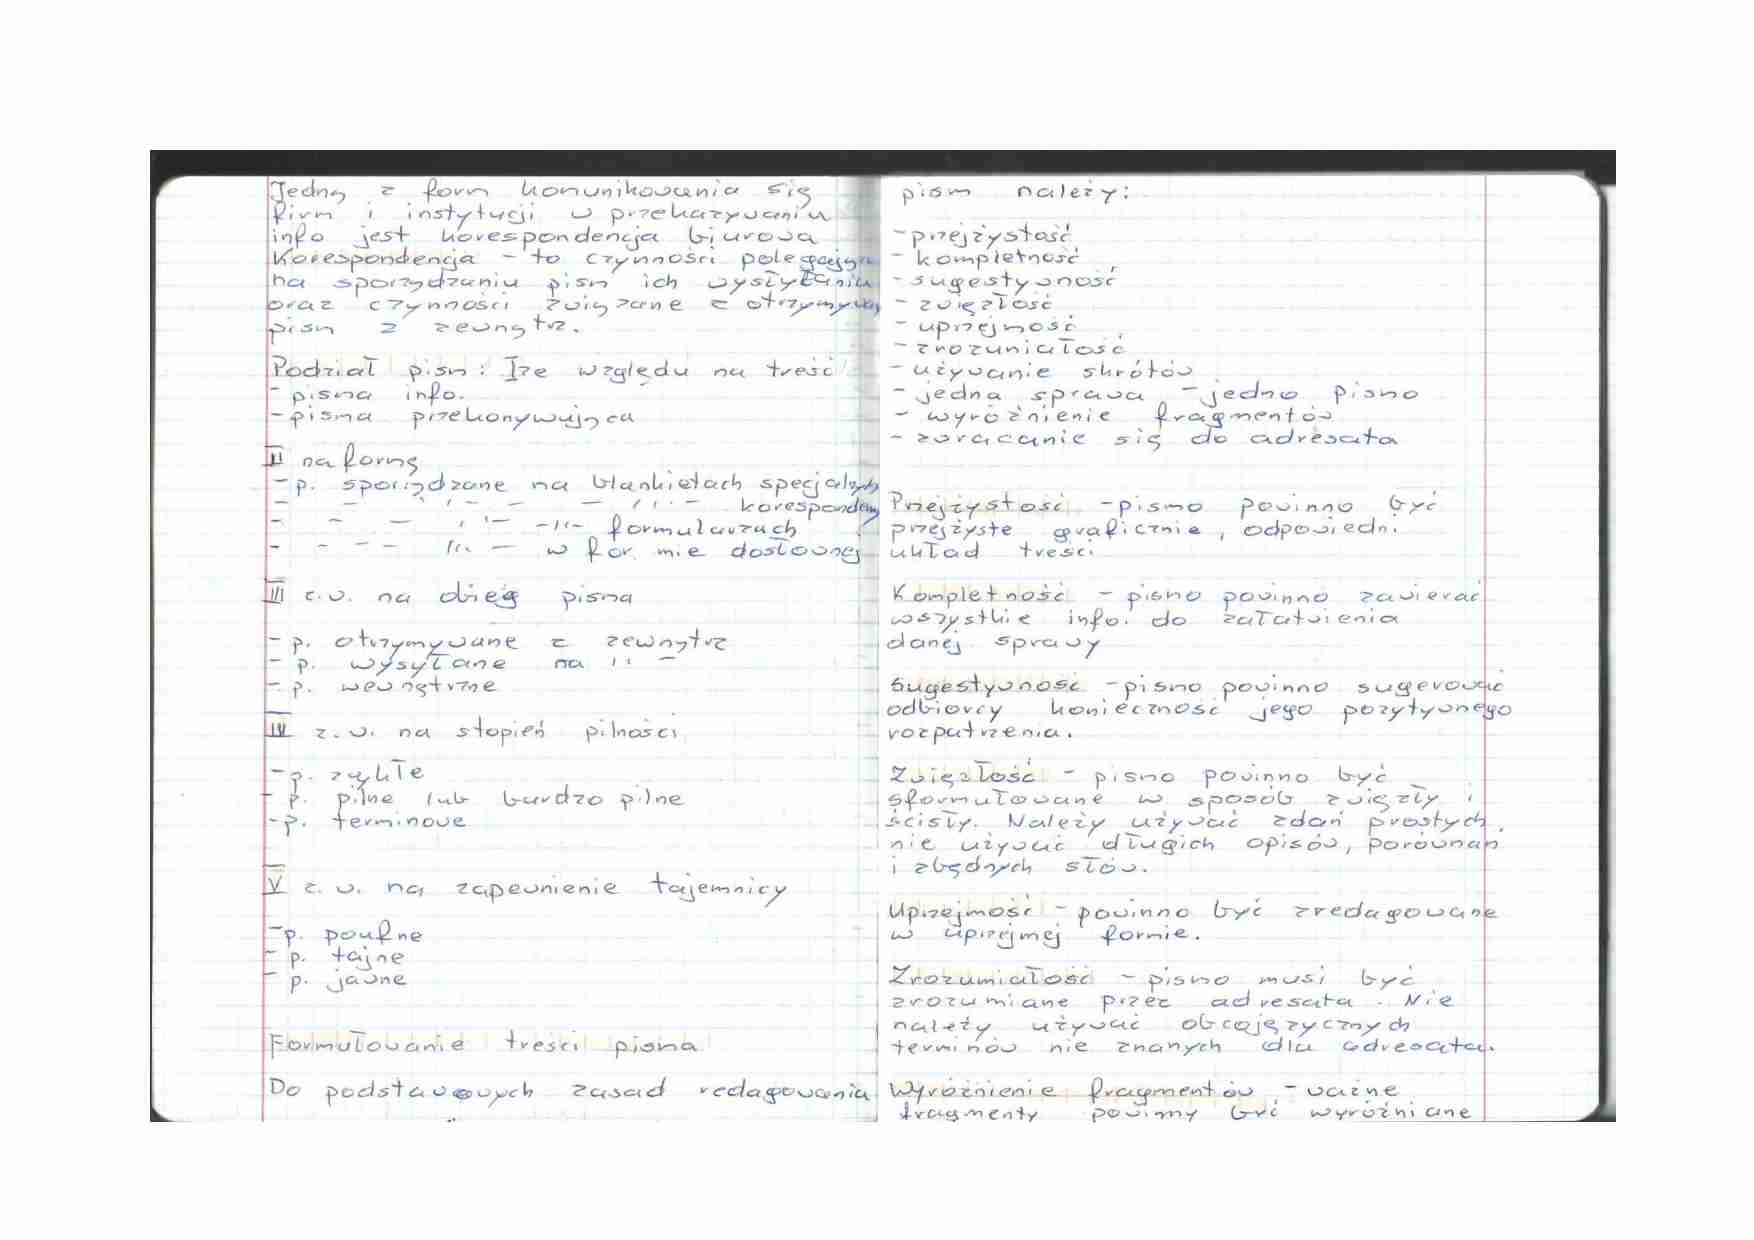 Jedną z form komunikowania się
firm i instytucji w przekazywaniu
info jest korespondencja biurowa
Korespondencja - to czynności polegające
na sporządzaniu pism ich wysyłaniu
oraz czynności związane z otrzymywa
pism z zewnątrz.
Podział pism: I ze względu na treść
- pisma info.
- pisma przekonywująca
II na formę
- p. sporządzane na blankietach specjalnych
- - - -//- - -//- - korespondem
- - - -//- -//- formularzach
- - - - -//- - w for mie dosłownej
III z.w. na obieg pisma
- p. otrzymywane z zewnątrz
- p. wysyłane na -//-
- p. wewnętrzne
IV z.w. na stopień pilności
- p. zwykłe
- p. pilne lub bardzo pilne
- p. terminowe
V z.w. na zapewnienie tajemnicy
- p. poufne
- p. tajne
- p. jawne
Formułowanie treści pisma
Do podstawowych zasad redagowania
pism należy:
- przejżystość
- kompletność
- sugestywność
- zwięzłość
- uprzejmość
- zrozumiałość
- używanie skrótów
- jedna sprawa - jedno pismo
- wyróżnienie fragmentów
- zwracanie się do adresata
Przejżystość - pismo powinno być
przejżyste graficznie, odpowiedn.
układ treści
Kompletność - pismo powinno zawierać
wszystkie info. do załatwienia
danej sprawy
Sugestywność - pismo powinno sugerować
odbiorcy konieczność jego pozytywnego
rozpatrzenia.
Zwięzłość - pismo powinno być
sformułowane w sposób zwięzły i
ścisły. Należy używać zdań prostych,
nie używać długich opisów, porównań
i zbędnych słów.
Uprzejmość - powinno być zredagowane
w uprzejmej formie.
Zrozumiałość - pismo musi być
zrozumiane przez adresata. Nie
należy używać obcojęzycznych
terminów nie znanych dla adresata.
Wyróżnienie fragmentów - ważne
fragmenty powinny być wyróżniane